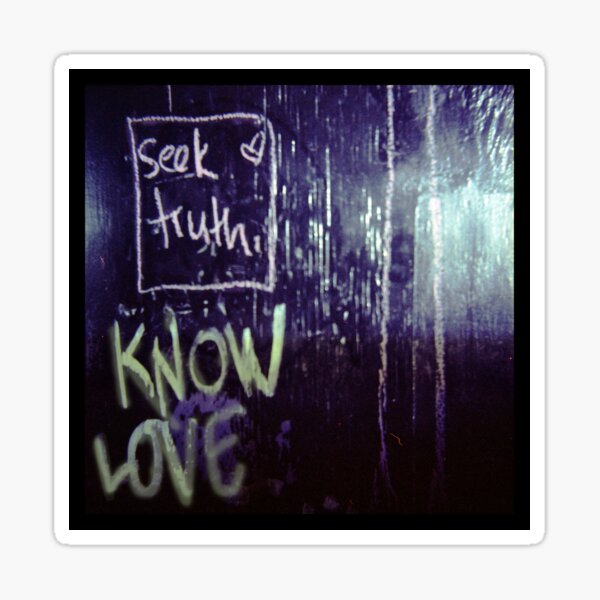 seek
truth.
KNOW
LOVE